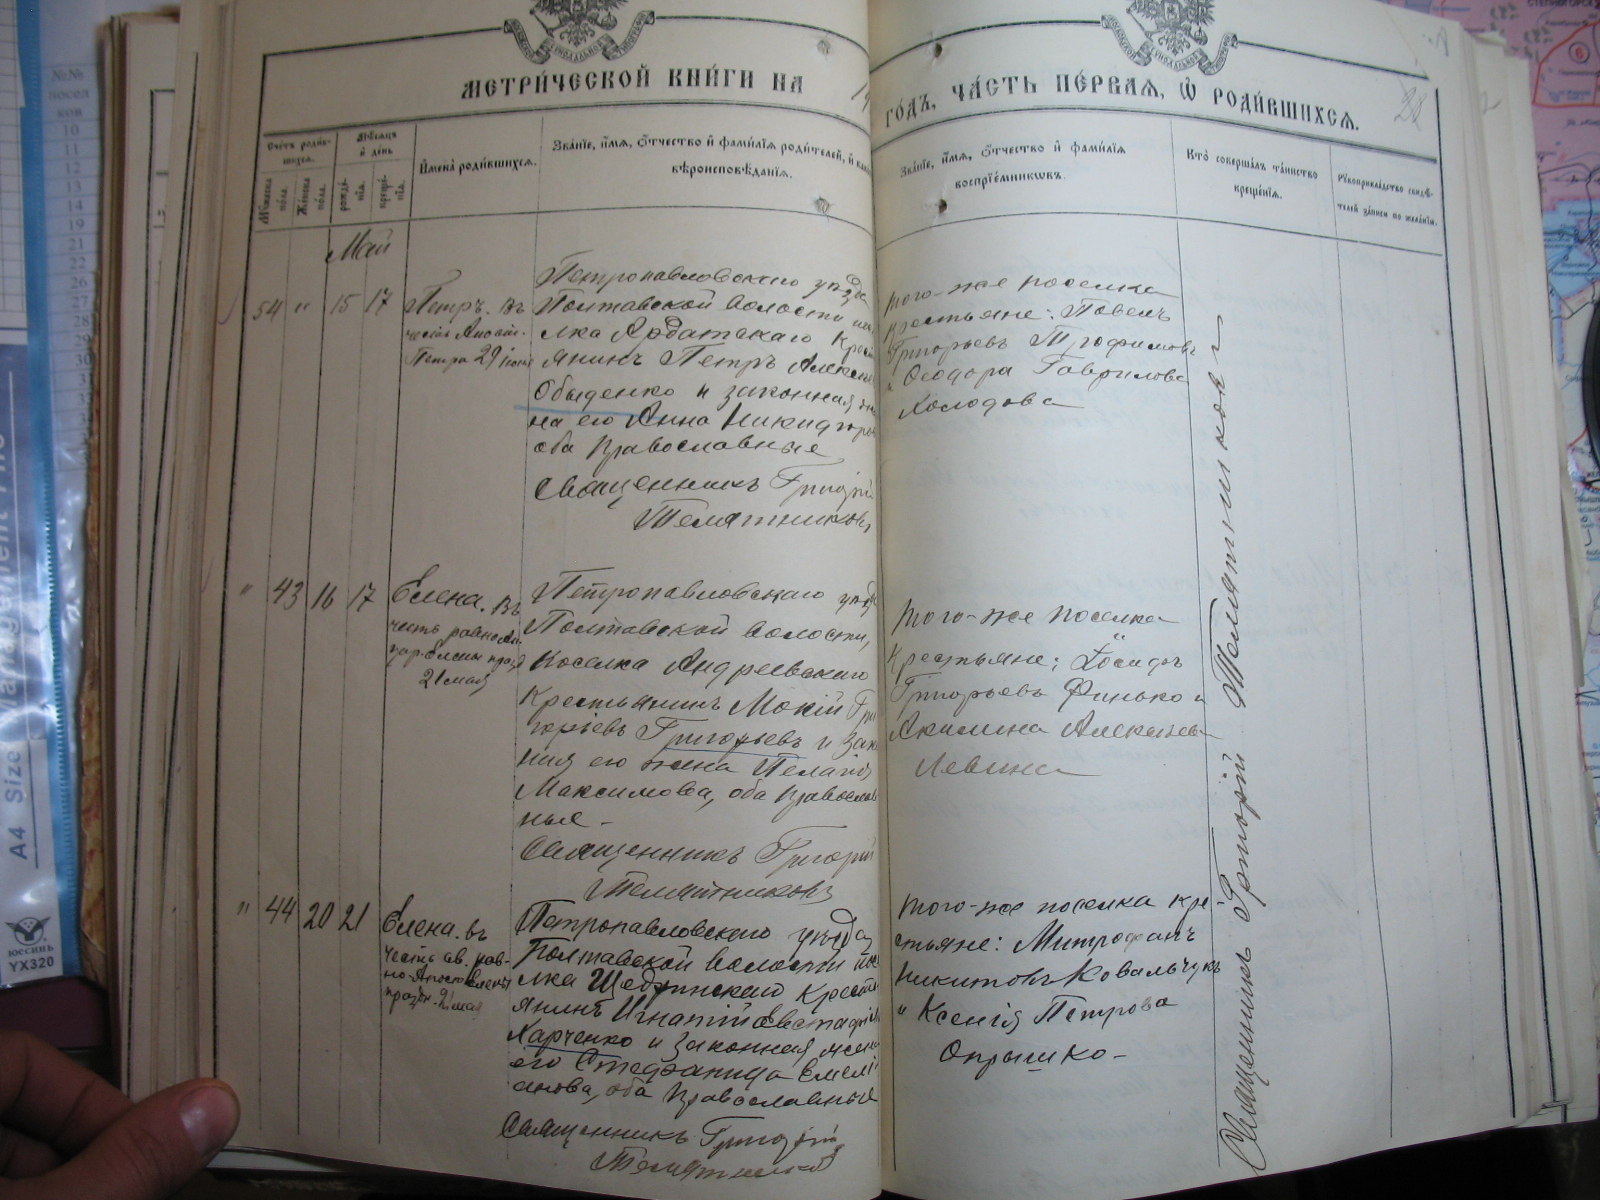 МЕТРИ́ЧЕСКОЙ КНИ́ГИ НА
ГО́ДЪ, ЧА́СТЬ ПЕ́РВАЯ, Ѡ РОДИ́ВШИХСЯ.
Сче́тъ роди́в-
шихся.
Мѣ́сяцъ
и де́нь
Му́жеска
по́ла.
Же́нска
по́ла.
рожде́-
нїя.
креще́-
нїя.
Имена̀ роди́вшихся.
Зва́нїе, и́мя, ѻ́тчество и фами́лїя роди́телей, и
вѣроисповѣ́данїя.
Зва́нїе, и́мя, ѻ́тчество и фами́лїя
воспрїе́мникωвъ.
Кто̀ соверша́лъ та́инство
креще́нїя.
Рꙋкоприкла́дство свидѣ́-
телей за́писи по жела́нїю.
Май
54 " 15 17
Петръ. Въ
честь Апост.
Петра 29 іюня
Петропавловскаго уѣзда
Полтавской волости
лка Ардатскаго Крест
янинъ Петръ Алексѣ
Обыденко и законная
на его Анна Никифор
оба Православные
Священникъ Григорій
Телятниковъ
того-же поселка
крестьяне: Павелъ
Григорьевъ Трофимовъ
и Ѳеодора Гаврилова
Холодова
" 43 16 17
Елена. Въ
честь равноап.
цар. Елены празд
21 мая
Петропавловскаго уѣзд
Полтавской волости,
поселка Андреевскаго
Крестьянинъ Мокій Гри
горіевъ Григорьевъ и Зак
ная его жена Пелагія
Максимова, оба Православ
ные -
Священникъ Григорій
Телятниковъ
того-же поселка
Крестьяне: Іосифъ
Григорьевъ Финько и
Акилина Алексѣева
Левина
" 44 20 21
Елена. въ
честь св. рав-
но-Апост Елены
праздн. 21 мая
Петропавловскаго уѣзда
Полтавской волости посе
лка Щедринскаго Кресть
янинъ Игнатій Евстафіе
Харченко и Законная жена
его Стефанида Емелі
анова, оба Православные
Священникъ Григорій
Телятниковъ
того-же поселка кре-
стьяне: Митрофанъ
Никитовъ Ковальчукъ
и Ксенія Петрова
Опрышко -
Священникъ Григорій Телятниковъ
№№
посел
ков
10
11
12
13
14
19
21
22
26
27
28
29
30
A4 Size
юсинь
YX320
СТЕПНОГОРСК
6